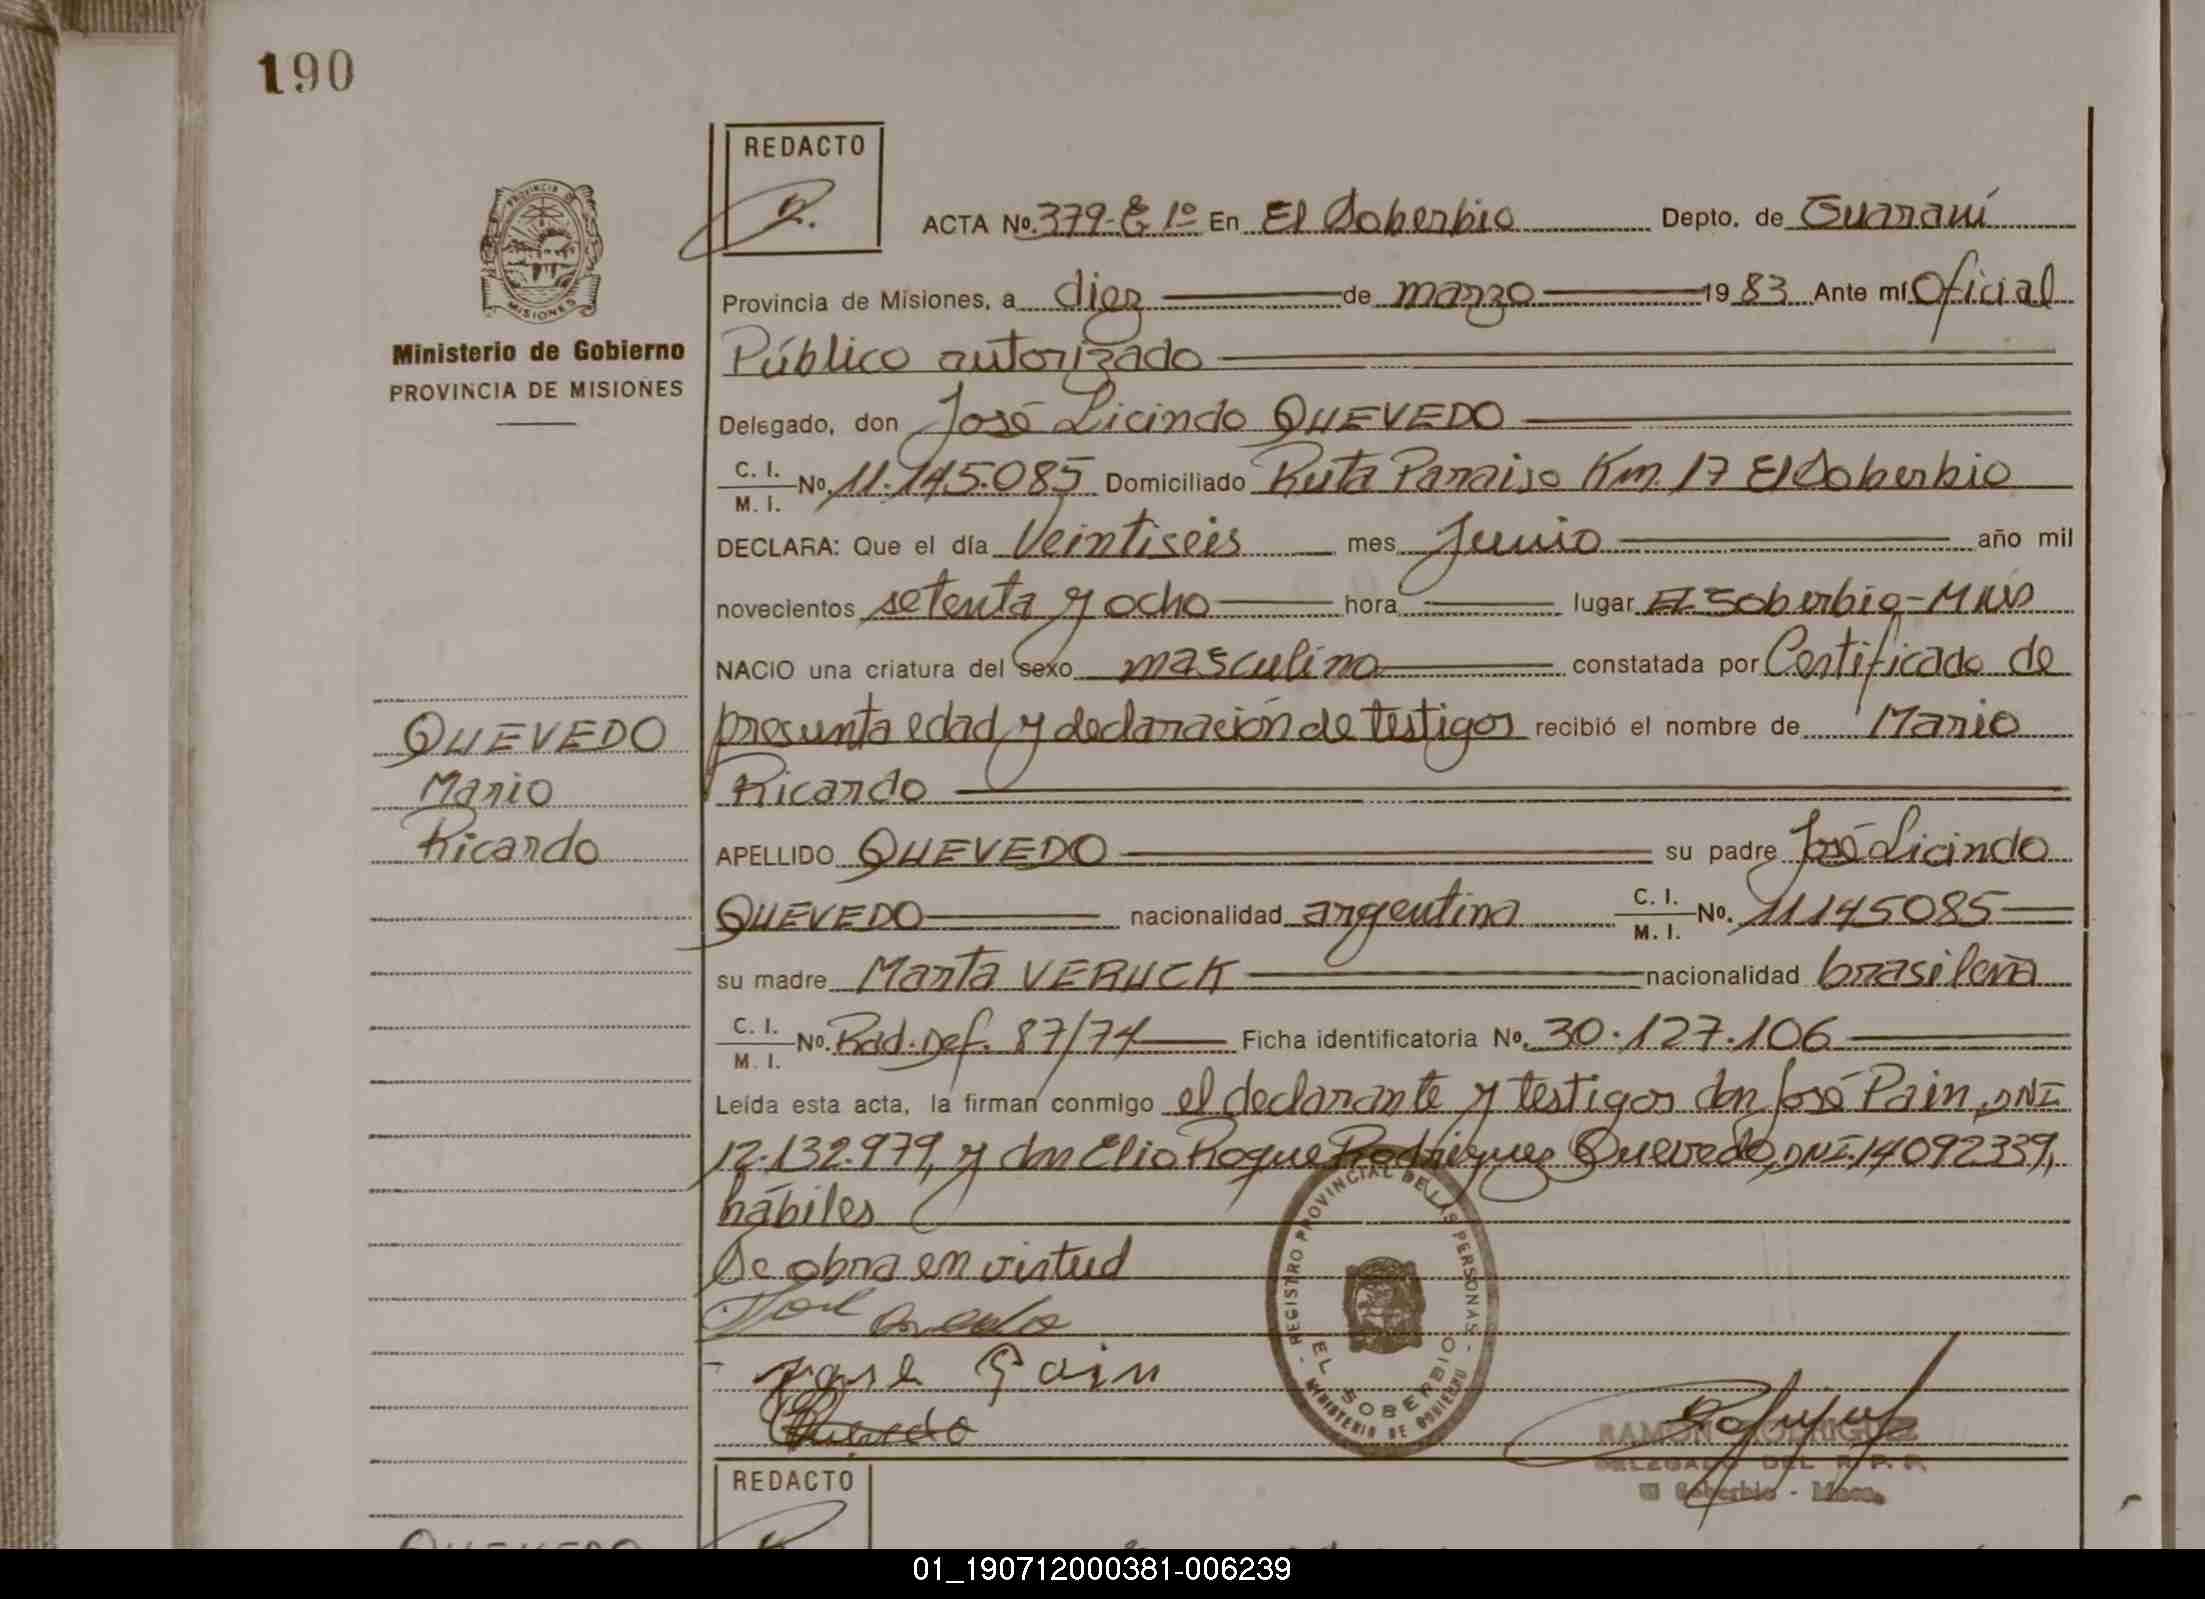 190
REDACTO
ACTA Nº. 379- E 1º En El Soberbio Depto. de Guaraní
PROVINCIA DE
MISIONES
Provincia de Misiones, a diez de marzo 1983 Ante mí Oficial
Ministerio de Gobierno
PROVINCIA DE MISIONES
Público autorizado
Delegado, don José Licindo QUEVEDO
C. I.
M. I. Nº. 11.145.085 Domiciliado Ruta Paraiso Km. 17 El Soberbio
DECLARA: Que el día Veintiseis mes Junio año mil
novecientos setenta y ocho hora lugar El Soberbio-MNES
NACIO una criatura del sexo masculino constatada por Certificado de
presunta edad y declaración de testigos recibió el nombre de Mario
Ricardo
QUEVEDO
Mario
Ricardo
APELLIDO QUEVEDO su padre José Licindo
QUEVEDO nacionalidad argentina C. I.
M. I. Nº. 11145085
su madre Marta VERUCK nacionalidad brasilera
C. I.
M. I. Nº. Rad. Def. 87/74 Ficha identificatoria Nº. 30.127.106
Leída esta acta, la firman conmigo el declarante y testigos don José Pain, DNI
12.132.979, y don Elio Roque Rodriguez Quevedo, DNI. 14092339,
hábiles
Se obra en virtud
José Pain
Quevedo
REGISTRO PROVINCIAL DE LAS PERSONAS
EL SOBERBIO
MINISTERIO DE GOBIERNO
RAMON RODRIGUEZ
DELEGADO DEL R. P. P.
El Soberbio - Mnes.
REDACTO
QUEVEDO
01_190712000381-006239